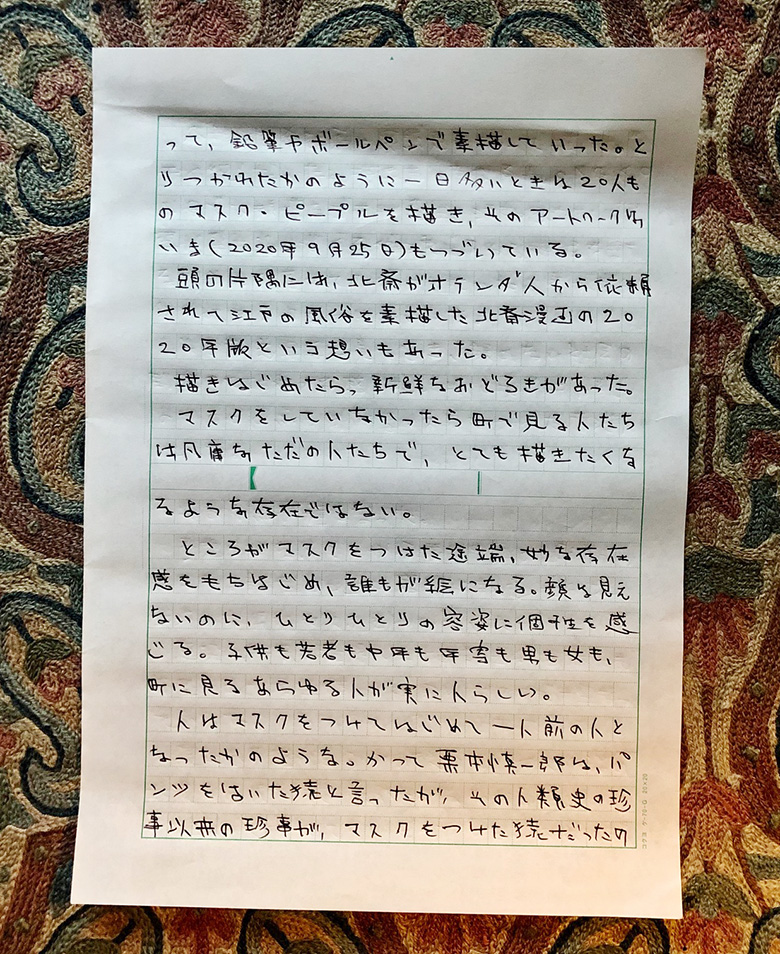 って、鉛筆やボールペンで素描していった。と
りつかれたかのように一日多いときは20人も
のマスク・ピープルを描き、そのアートワークは
いま(2020年9月25日)もつづいている。
頭の片隅には、北斎がオランダ人から依頼
されて江戸の風俗を素描した北斎漫画の20
20年版という想いもあった。
描きはじめたら、新鮮なおどろきがあった。
マスクをしていなかったら町で見る人たち
は凡庸なただの人たちで、とても描きたくな
るような存在ではない。
ところがマスクをつけた途端、妙な存在
感をもちはじめ、誰もが絵になる。顔は見え
ないのに、ひとりひとりの容姿に個性を感
じる。子供も若者も中年も年寄も男も女も、
町に見るあらゆる人が実に人らしい。
人はマスクをつけてはじめて一人前の人と
なったかのような。かつて栗本慎一郎は、パ
ンツをはいた猿と言ったが、その人類史の珍
事以来の珍事が、マスクをつけた猿だったの